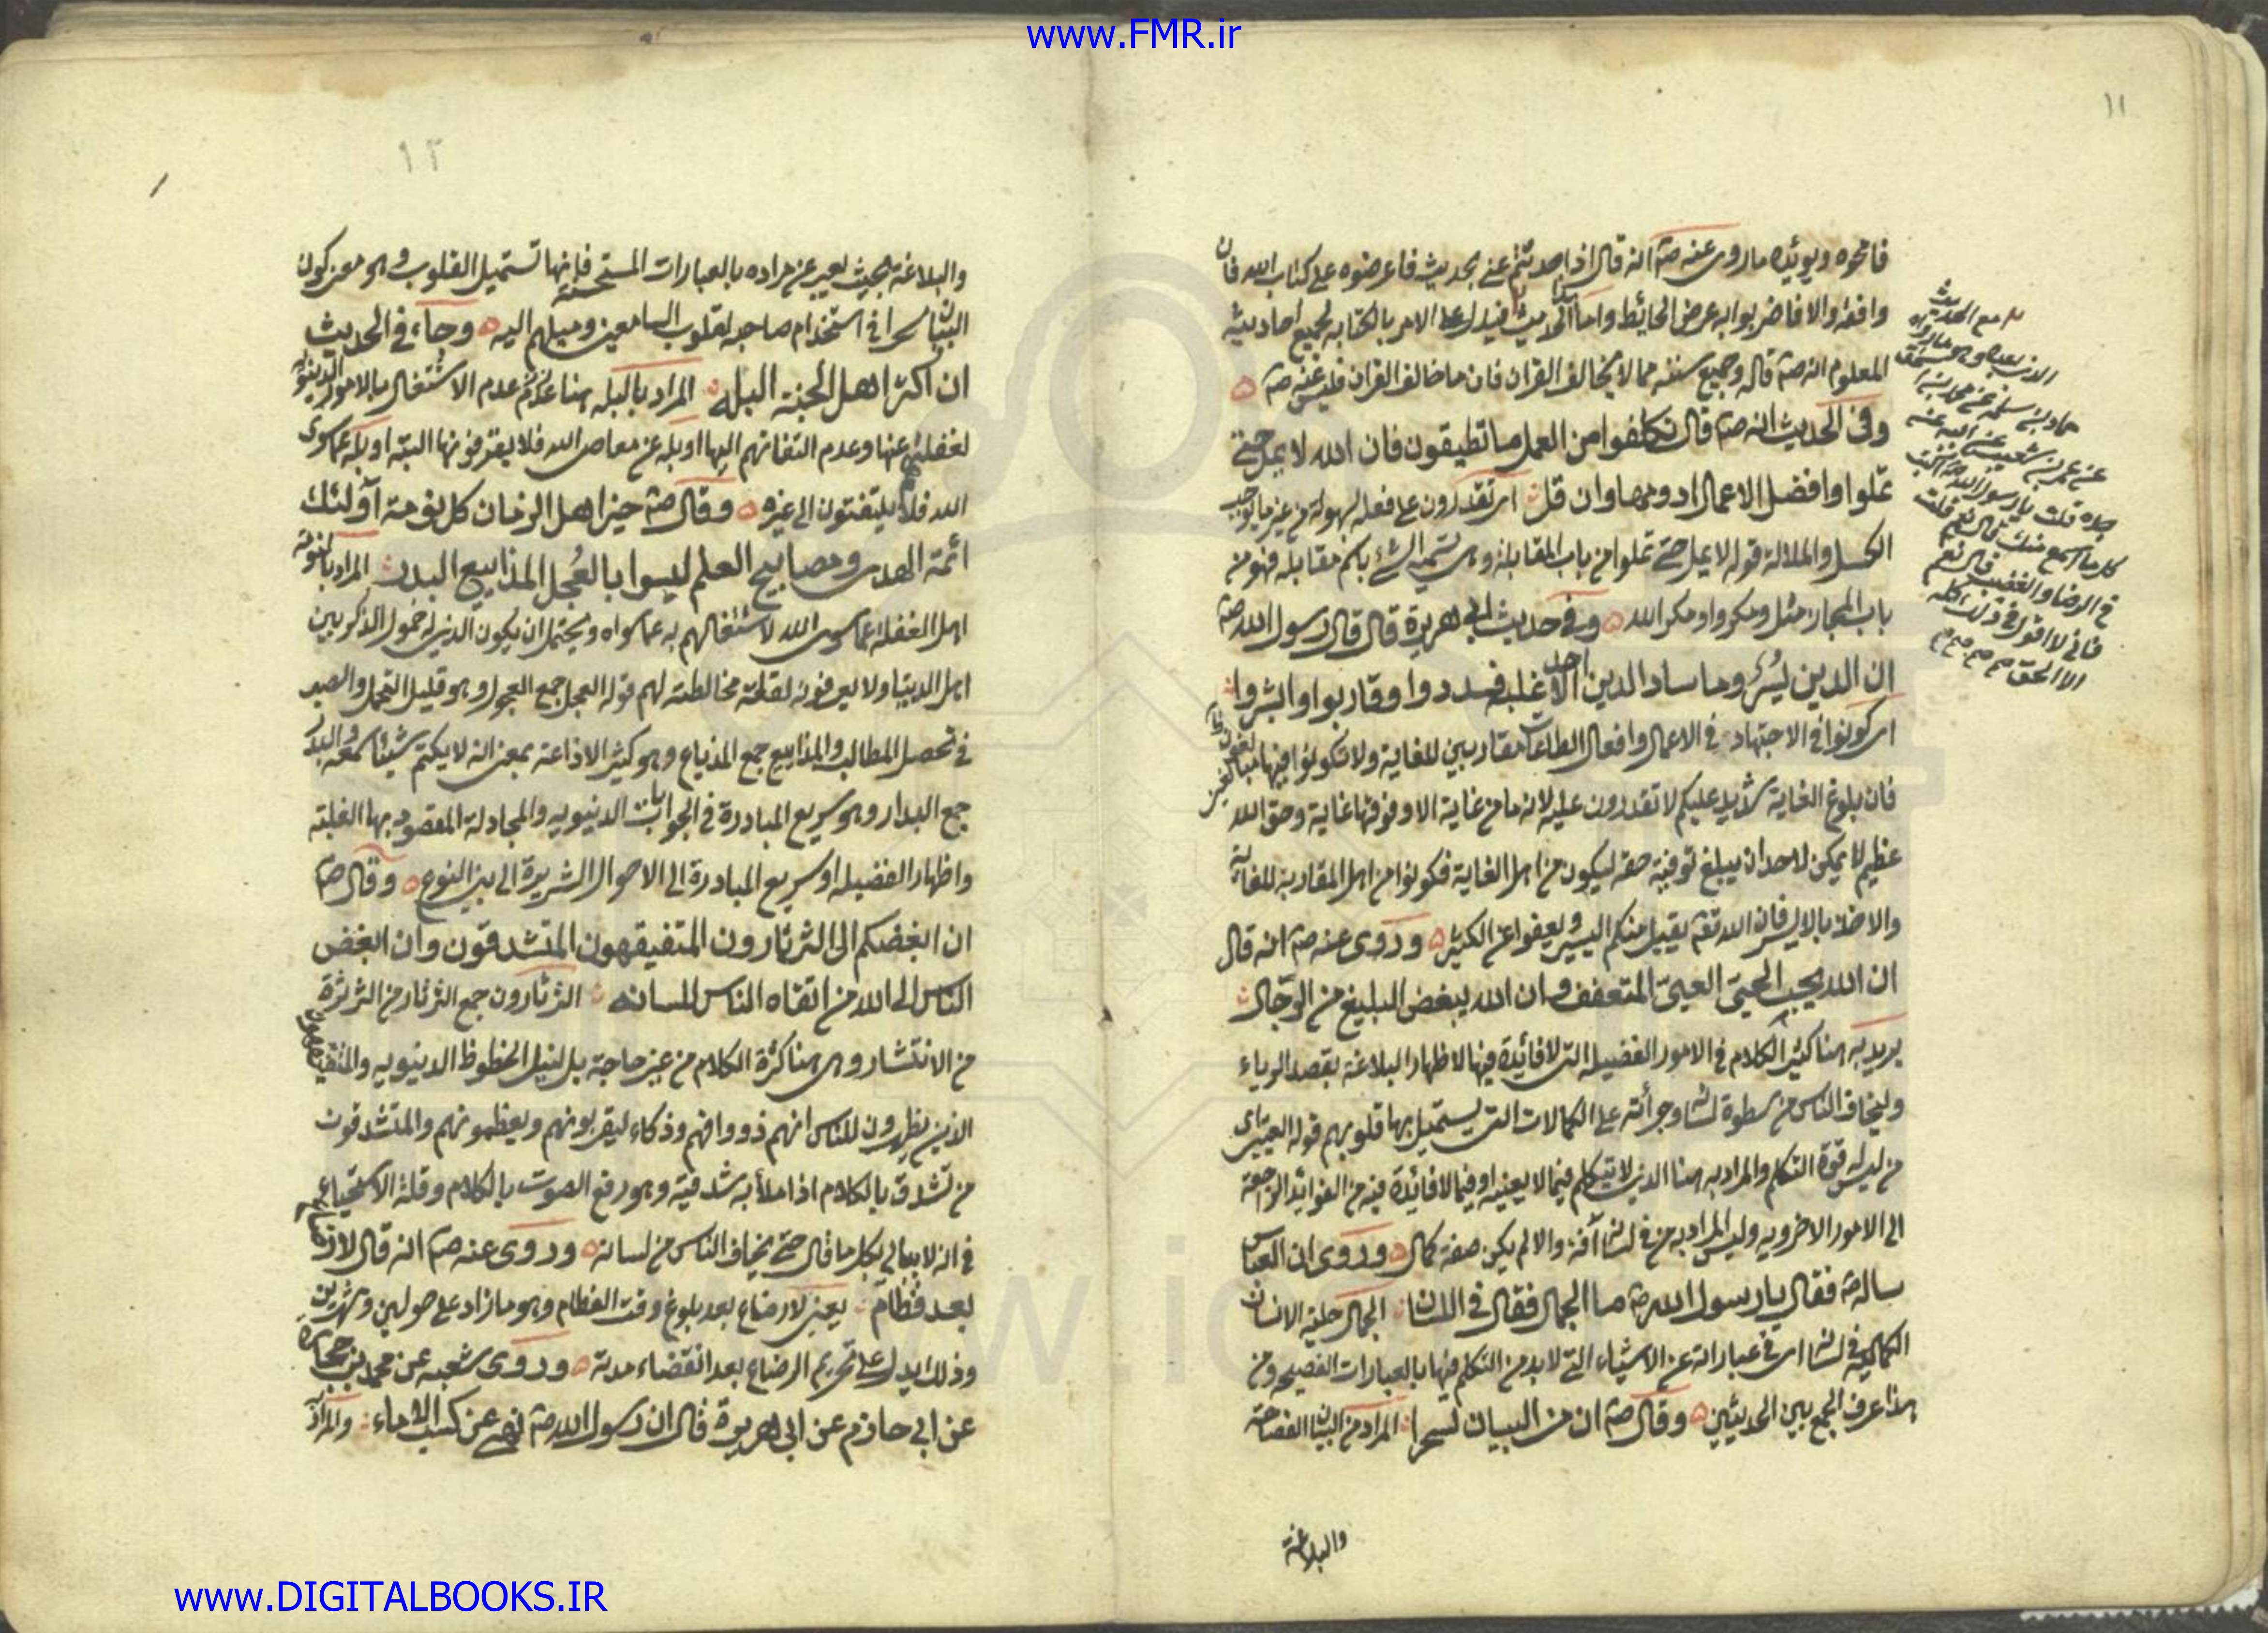 www.FMR.ir
١١
فامحوه ويؤيده ما روى عنه صم انه قال اذا حدثتم عني بحديث فاعرضوه على كتاب الله فان
وافقه والا فاضربوا به عرض الحائط واما الحديث فيدل على الامر بالكتابة لجميع احاديثه
المعلوم انه صم قاله وجميع سننه مما لا يخالف القران فان ما خالف القران فليس عنه صم
وفى الحديث انه صم قال تكلفوا من العمل ما تطيقون فان الله لا يمل حتى
تملوا وافضل الاعمال ادومها وان قل اى تقدرون على فعله بسهولة من غير ما يوجب
الكسل والملالة قوله لا يمل حتى تملوا من باب المقابلة وهى تسمية الشئ باسم مقابله فهو من
باب المجاز مثل ومكروا ومكر الله وفى حديث ابى هريرة قال قال رسول الله صم
ان الدين يسر وما ساد الدين احد الا غلبه فسددوا وقاربوا وابشروا
اى كونوا فى الاجتهاد فى الاعمال وافعال الطاعات مقاربين للغاية ولا تكونوا فيها مبالغين
فان بلوغ الغاية شديد عليكم لا تقدرون عليه لانه ما من غاية الا وفوقها غاية وحق الله
عظيم لا يمكن لاحد ان يبلغ توفية حقه ليكون من اهل الغاية فكونوا من اهل المقاربة للغاية
والاخذ باليسر فان الله تعم يقبل منكم اليسير ويعفوا عن الكثير وروى عنه صم انه قال
ان الله يحب الحيى العيى المتعفف وان الله يبغض البليغ من الرجال
يريد به هنا كثير الكلام فى الامور الفضيلة التى لا فائدة فيها لاظهار البلاغة بقصد الرياء
وليخاف الناس من سطوة لسانه وجرأته على الكمالات التى يستميل بها قلوبهم قوله العيى اى
من ليس له قوة التكلم والمراد به هنا الذى لا يتكلم فيما لا يعنيه او فيما لا فائدة فيه من الفوائد الراجعة
الى الامور الاخروية وليس المراد به من فى لسانه آفة والا لم يكن صفة كمال وروى ان العباس
ساله صم فقال يا رسول الله صم ما الجمال فقال فى اللسان الجمال حلية الانسان
الكمالية فى لسانه اى فى عباراته عن الاشياء التى لا بد من التكلم فيها بالعبارات الفصيحة ومن
هذا عرف الجمع بين الحديثين وقال صم ان من البيان لسحرا المراد من البيان الفصاحة
والبلاغة
مع الحديث
الذى بعده وهو ما رواه
حماد بن سلمة عن محمد بن اسحق
عن عمرو بن شعيب عن ابيه عن
جده قلت يا رسول الله اكتب
كل ما اسمع منك قال نعم قلت
فى الرضا والغضب قال نعم
فانى لا اقول فى ذلك كله
الا الحق
١٢
والبلاغة بحيث يعبر عن مراده بالعبارات المستحسنة فانها تستميل القلوب وهو معنى كون
البيان سحرا فى استخدام صاحبه لقلوب السامعين وميلهم اليه وجاء فى الحديث
ان اكثر اهل الجنة البله المراد بالبله هنا عدم الاشتغال بالامور الدنيوية
لغفلتهم عنها وعدم التفاتهم اليها او بله عن معاصى الله فلا يقترفونها البتة او بله عما سوى
الله فلا يلتفتون الى غيره وقال صم خير اهل الزمان كل نومة اولئك
ائمة الهدى ومصابيح العلم ليسوا بالعجل المذاييع البدر المراد بالنومة
اهل الغفلة عما سوى الله لاشتغالهم به عما سواه ويحتمل ان يكون الذين له خمول الذكر بين
اهل الدنيا ولا يعرفونه لقلة مخالطته لهم قوله العجل جمع العجول وهو قليل التحمل والصبر
فى تحصل المطالب والمذاييع جمع المذياع وهو كثير الاذاعة بمعنى انه لا يكتم شيئا سمعه والبدر
جمع البدار وهو سريع المبادرة فى الجوابات الدنيوية والمجادلة المقصود بها الغلبة
واظهار الفضيلة او سريع المبادرة الى الاحوال الشريرة الى بنى النوع وقال صم
ان ابغضكم الى الثرثارون المتفيقهون المتشدقون وان ابغض
الناس الى الله من اتقاه الناس للسانه الثرثارون جمع الثرثار من الثرثرة
من الانتشار وهى هنا كثرة الكلام من غير حاجة بل لنيل الحظوظ الدنيوية والمتفيهقون
الذين يظهرون للناس انهم ذووا فهم وذكاء ليقربونهم ويعظمونهم والمتشدقون
من تشدق بالكلام اذا ملأ به شدقيه وهو رفع الصوت بالكلام وقلة الاستحياء
فى انه لا يبالى بكل ما قال حتى يخاف الناس من لسانه وروى عنه صم انه قال لا رضاع
بعد فطام يعنى لا رضاع بعد بلوغ وقت الفطام وهو ما زاد على حولين وشهرين
وذلك يدل على تحريم الرضاع بعد انقضاء مدته وروى شعبة عن محمد بن جحادة
عن ابى حازم عن ابى هريرة قال ان رسول الله صم نهى عن كسب الاماء والمراد
www.DIGITALBOOKS.IR